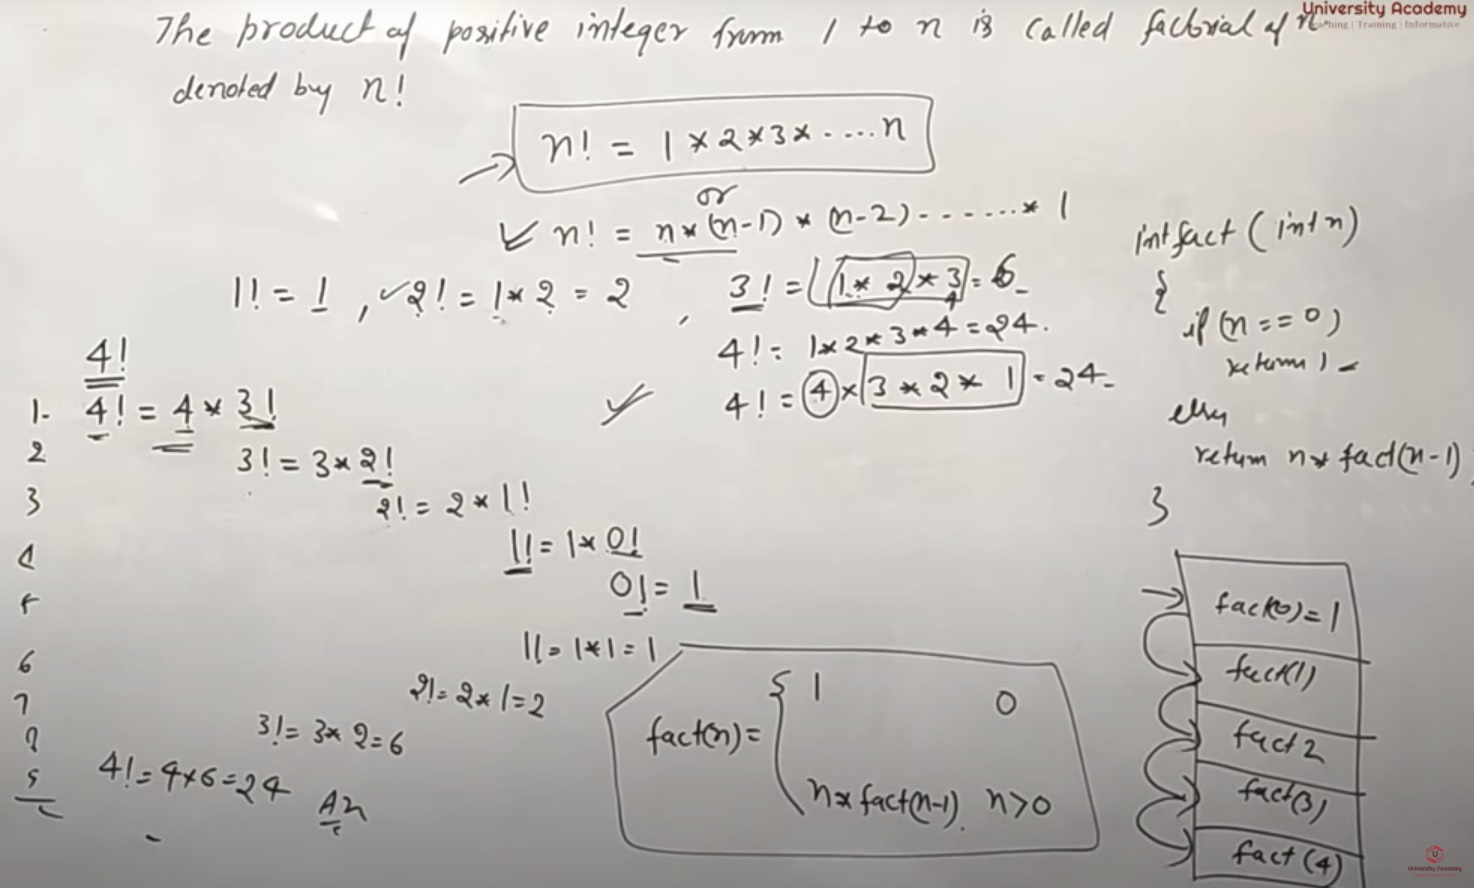 University Academy
Teaching | Training | Informative
The product of positive integer from 1 to n is called factorial of n
denoted by n!
n! = 1 * 2 * 3 * ..... n
or
n! = n * (n-1) * (n-2) ------- * 1
1! = 1 , 2! = 1 * 2 = 2 , 3! = 1 * 2 * 3 = 6
4! = 1 * 2 * 3 * 4 = 24.
4! = 4 × 3 * 2 * 1 = 24
4!
1. 4! = 4 * 3!
2 3! = 3 * 2!
3 2! = 2 * 1!
4 1! = 1 * 0!
5 0! = 1
6 1! = 1 * 1 = 1
7 2! = 2 * 1 = 2
8 3! = 3 * 2 = 6
9 4! = 4 * 6 = 24 An
int fact (int n)
{
if (n == 0)
return 1
else
return n * fact(n-1);
}
fact(n) = { 1 0
n * fact(n-1), n>0
fact(0) = 1
fact(1)
fact 2
fact(3)
fact (4)
University Academy